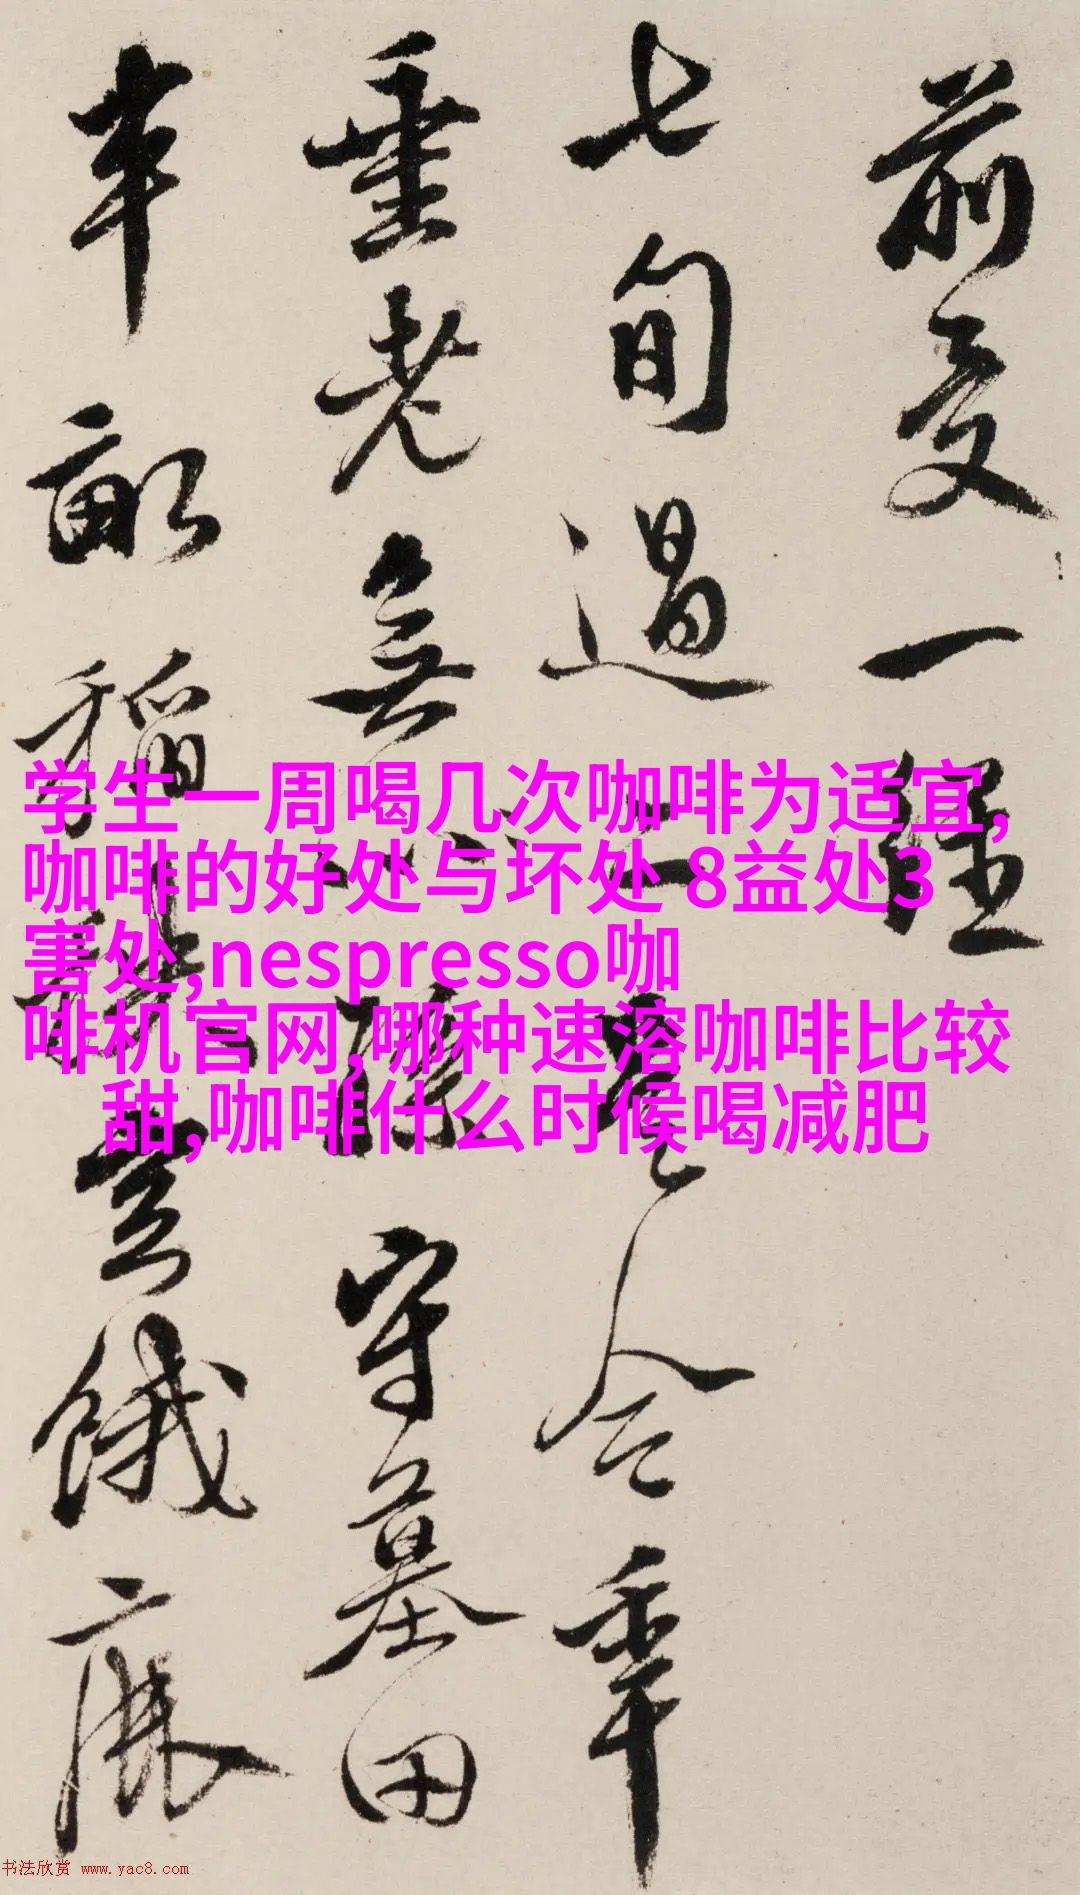 前受一經
七旬過二豈今年
垂老無孫守墓田
半畝稻
學生一周喝几次咖啡为适宜,
咖啡的好处与坏处 8益处3
害处,nespresso咖
啡机官网,哪种速溶咖啡比较
甜,咖啡什么时候喝减肥
书法欣赏 www.yac8.com